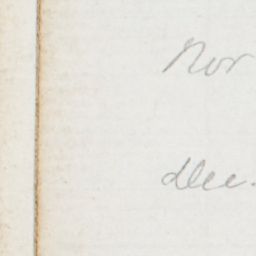 Nov
Dec.